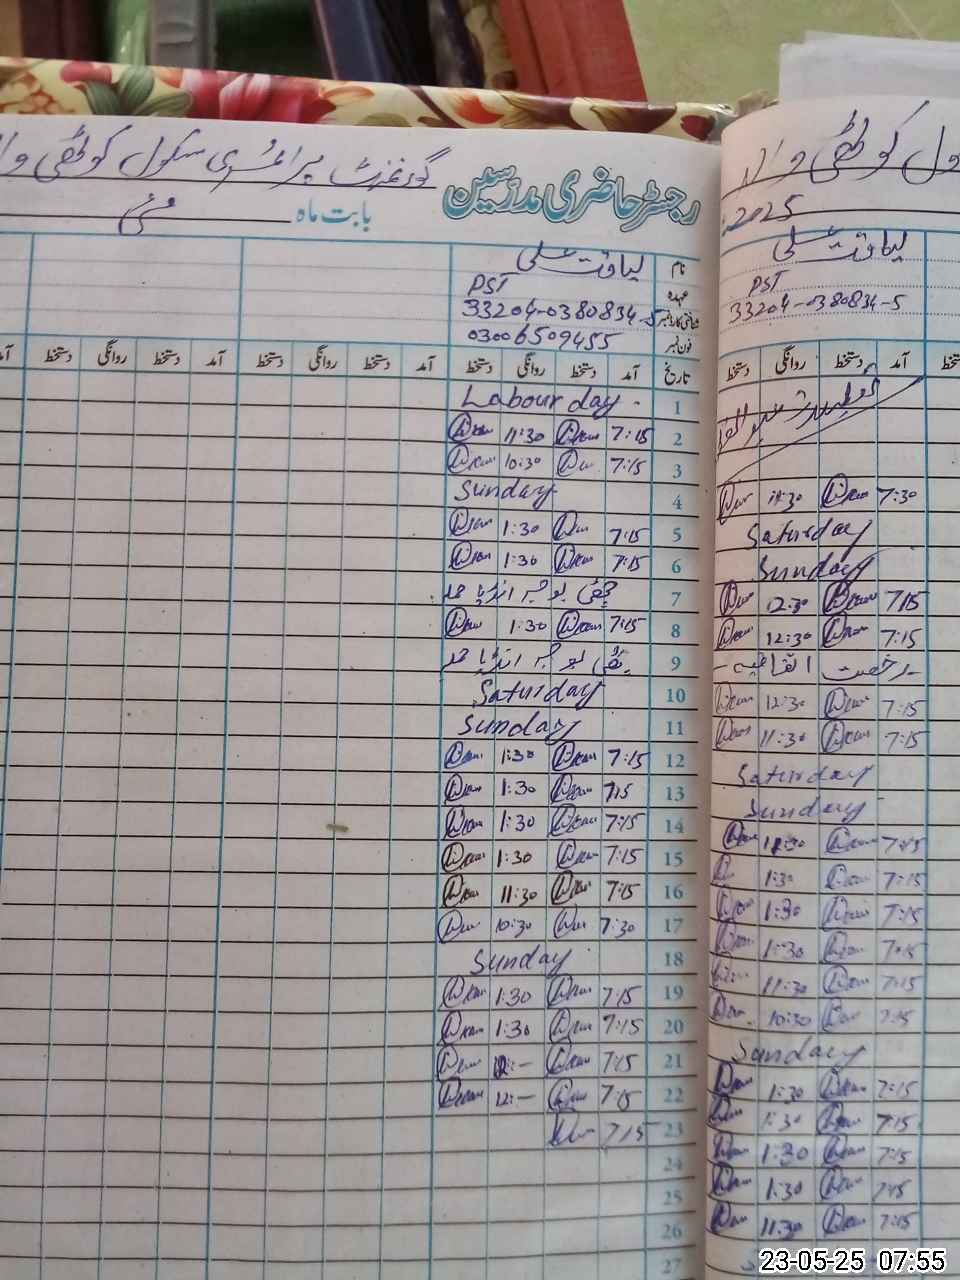 گورنمنٹ پرائمری سکول کوٹھی وا
رجسٹر حاضری مدرسین
بابت ماہ مئی
نام لیاقت علی
عہدہ PST
شناختی کارڈ نمبر 33204-0380834-5
فون نمبر 03006509455
تاریخ آمد دستخط روانگی دستخط آمد دستخط روانگی دستخط آمد
1 Labour day -
2 7:15 11:30
3 7:15 10:30
4 Sunday
5 7:15 1:30
6 7:15 1:30
7 چھٹی بوجہ انڈیا حملہ
8 7:15 1:30
9 چھٹی بوجہ انڈیا حملہ
10 Saturday
11 Sunday
12 7:15 1:30
13 7:15 1:30
14 7:15 1:30
15 7:15 1:30
16 7:15 11:30
17 7:30 10:30
18 Sunday
19 7:15 1:30
20 7:15 1:30
21 7:15 12:-
22 7:15 12:-
23 7:15
24
25
26
27
ول کوٹھی وا
2025
لیاقت علی
PST
33204-0380834-5
آمد دستخط روانگی دستخط
تعطیلات عید الفطر
7:30 11:30
Saturday
Sunday
7:15 12:30
7:15 12:30
رخصت اتفاقیہ
7:15 12:30
7:15 11:30
Saturday
Sunday
7:15 11:30
7:15 1:30
7:15 1:30
7:15 1:30
7:15 11:30
7:15 10:30
Sunday
7:15 1:30
7:15 1:30
7:15 1:30
7:15 1:30
7:15 11:30
23-05-25 07:55